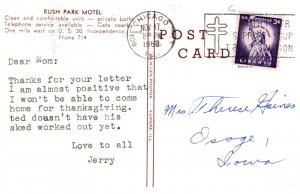 RUSH PARK MOTEL
Clean and comfortable units — private baths
Telephone service available — Cafe nearby
One mile west on U. S. 20, Independence,
Phone 714
Dear Mom:
Thanks for your letter
I am almost positive that
I won't be able to come
home for thanksgiving.
ted doasn't have his
sked worked out yet.
Love to all
Jerry
CHICAGO
NOV
PM
1960
POST
CARD
U.S. POSTAGE
3¢
LIBERTY
Mrs Therese Haines
Osage,
Iowa